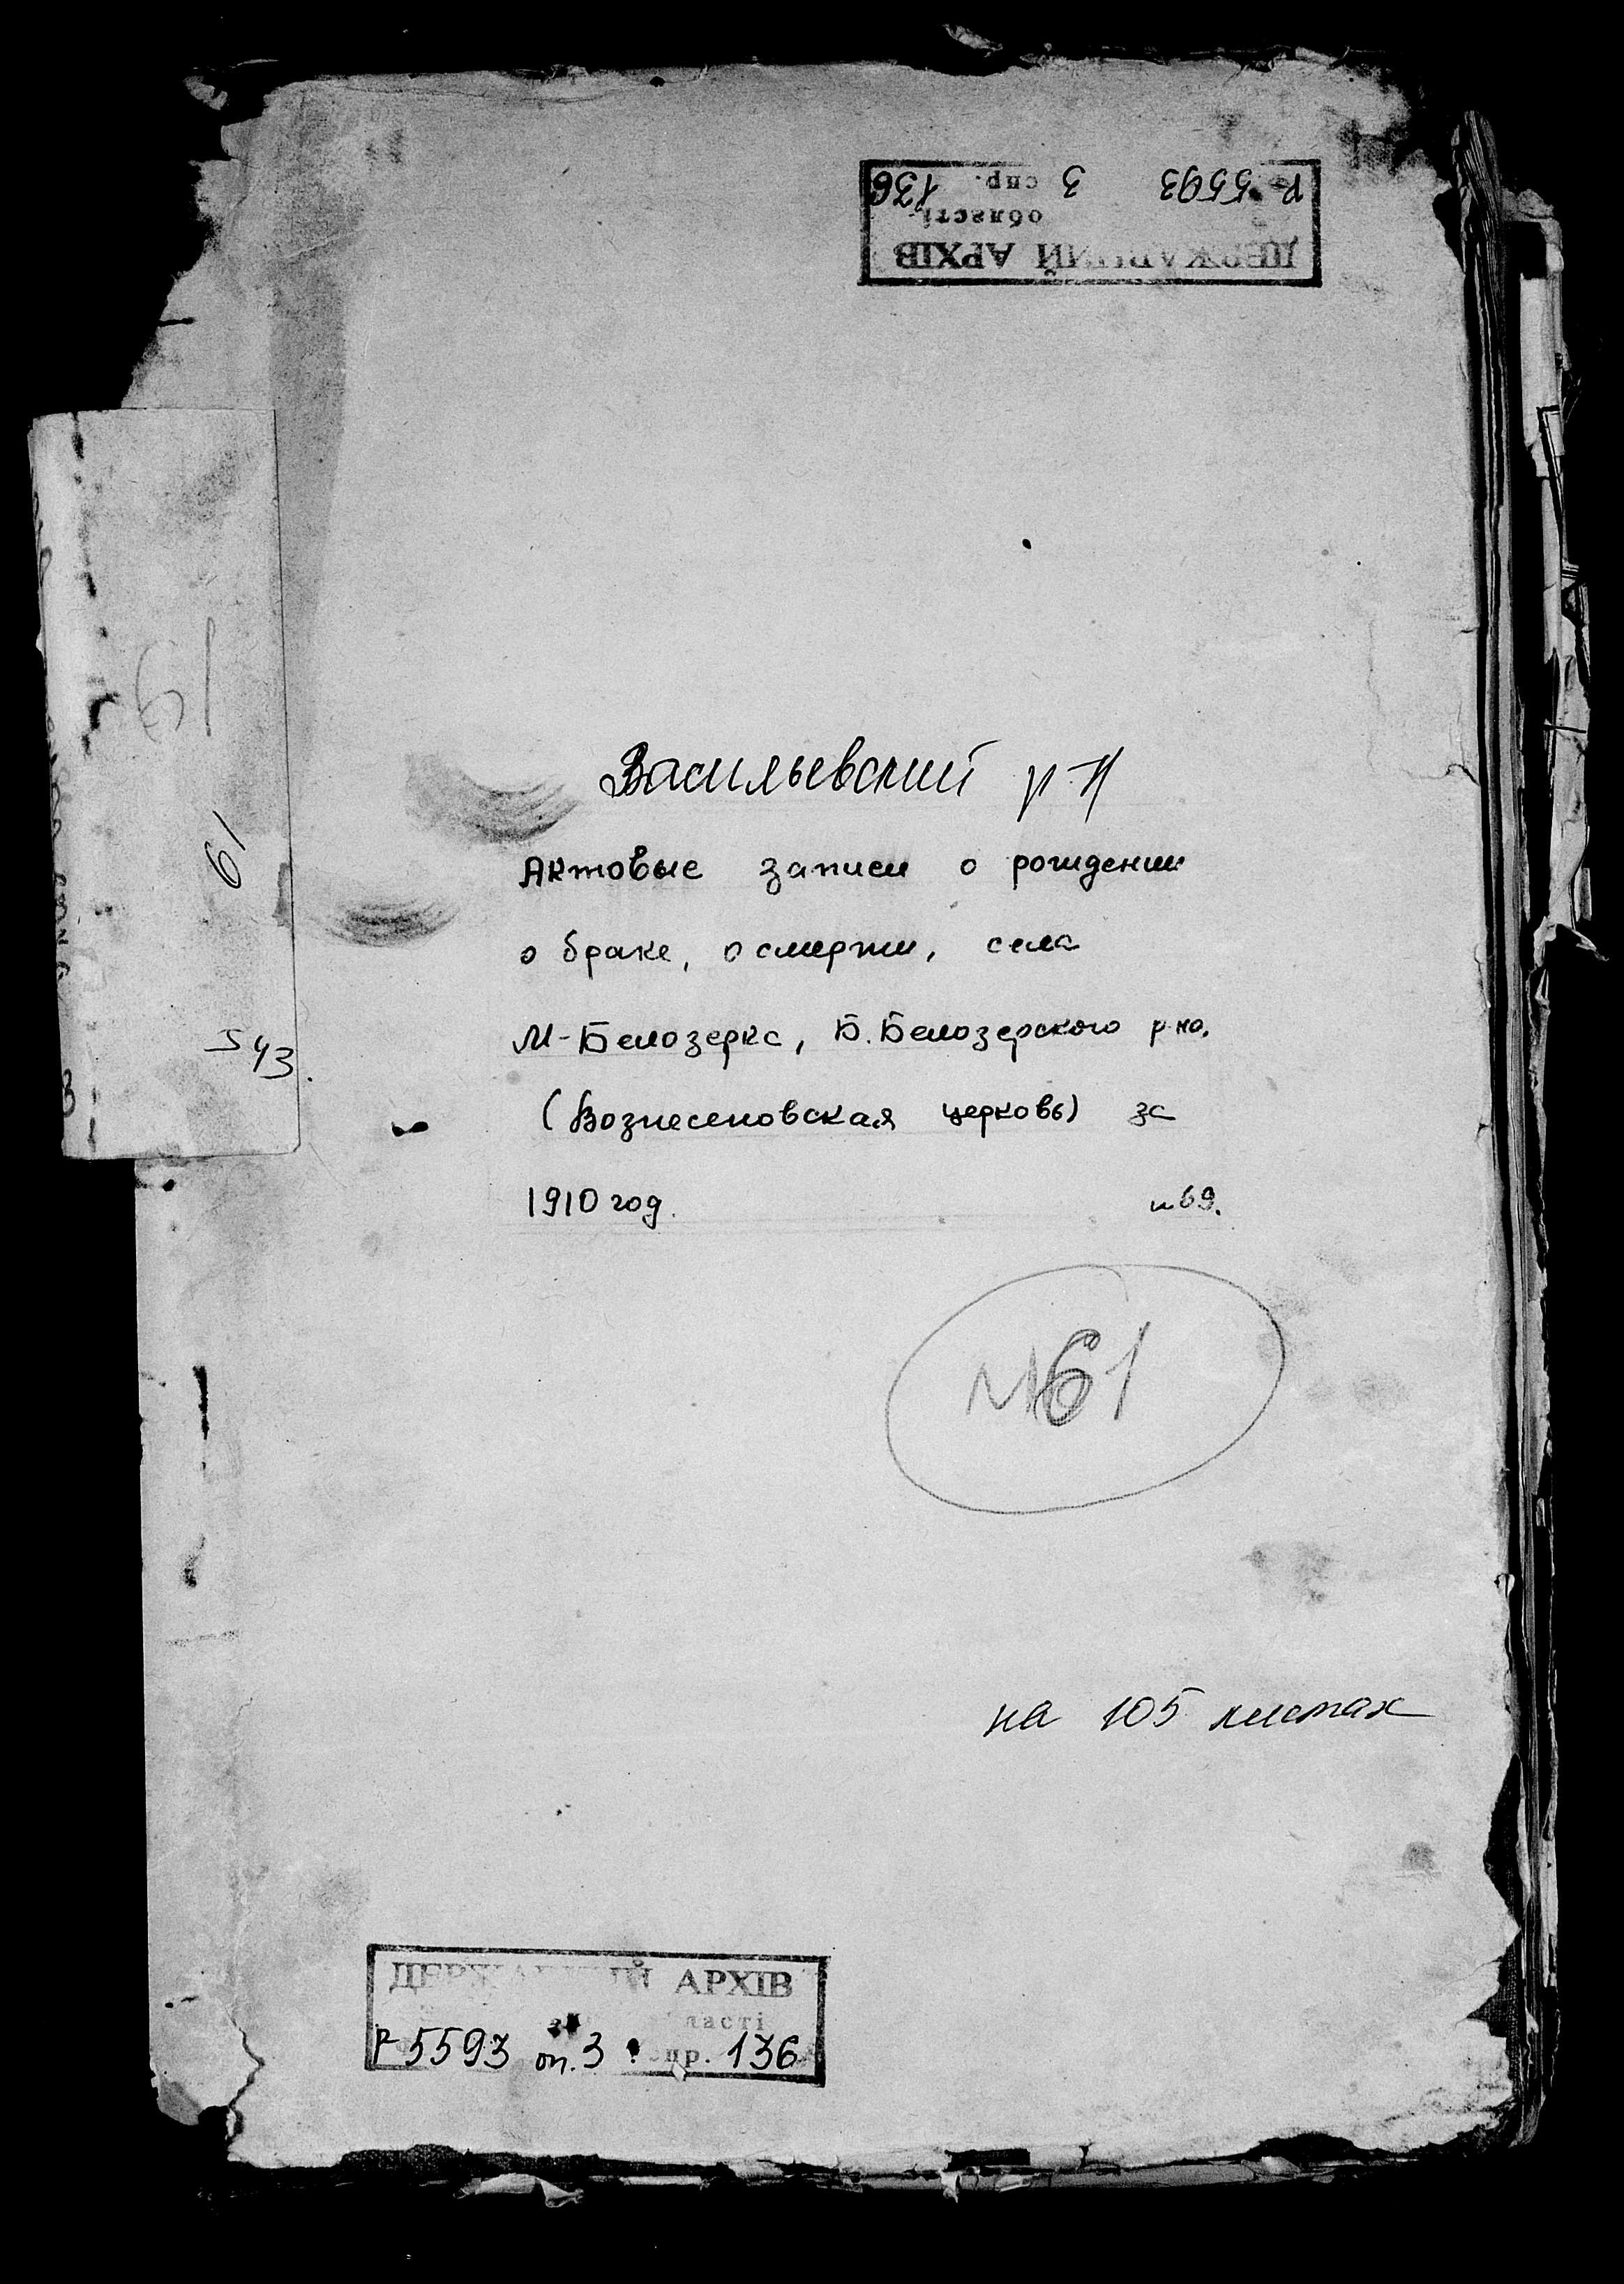 Р 5593 3 спр. 136
області
ДЕРЖАВНИЙ АРХІВ
61
61
543.
Васильевский р-н
Актовые записи о рождении
о браке, о смерти, села
М-Белозерка, Б. Белозерского р-на.
(Вознесеновская церковь) за
1910 год. н69.
N61
на 105 листах
ДЕРЖАВНИЙ АРХІВ
ласті
Р 5593 оп. 3 спр. 136